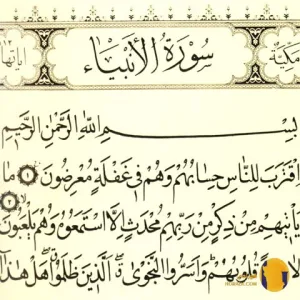 مكية
سورة الأنبياء
آياتها ١١٢
بِسْمِ اللَّهِ الرَّحْمَٰنِ الرَّحِيمِ
اقْتَرَبَ لِلنَّاسِ حِسَابُهُمْ وَهُمْ فِي غَفْلَةٍ مُعْرِضُونَ ١ مَا
يَأْتِيهِمْ مِنْ ذِكْرٍ مِنْ رَبِّهِمْ مُحْدَثٍ إِلَّا اسْتَمَعُوهُ وَهُمْ يَلْعَبُونَ ٢
لَاهِيَةً قُلُوبُهُمْ وَأَسَرُّوا النَّجْوَى الَّذِينَ ظَلَمُوا هَلْ هَٰذَا